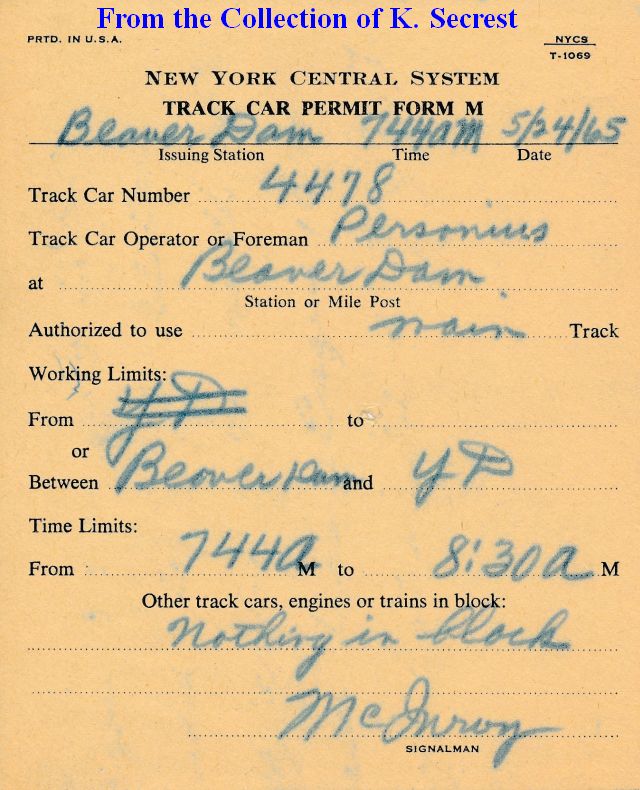 From the Collection of K. Secrest
PRTD. IN U.S.A.
NYCS
T-1069
NEW YORK CENTRAL SYSTEM
TRACK CAR PERMIT FORM M
Beaver Dam 744AM 5/24/65
Issuing Station Time Date
Track Car Number 4478
Track Car Operator or Foreman Personius
at Beaver Dam
Station or Mile Post
Authorized to use main Track
Working Limits:
From YD to
or
Between Beaver Dam and YD
Time Limits:
From 744A M to 8:30A M
Other track cars, engines or trains in block:
Nothing in block
SIGNALMAN